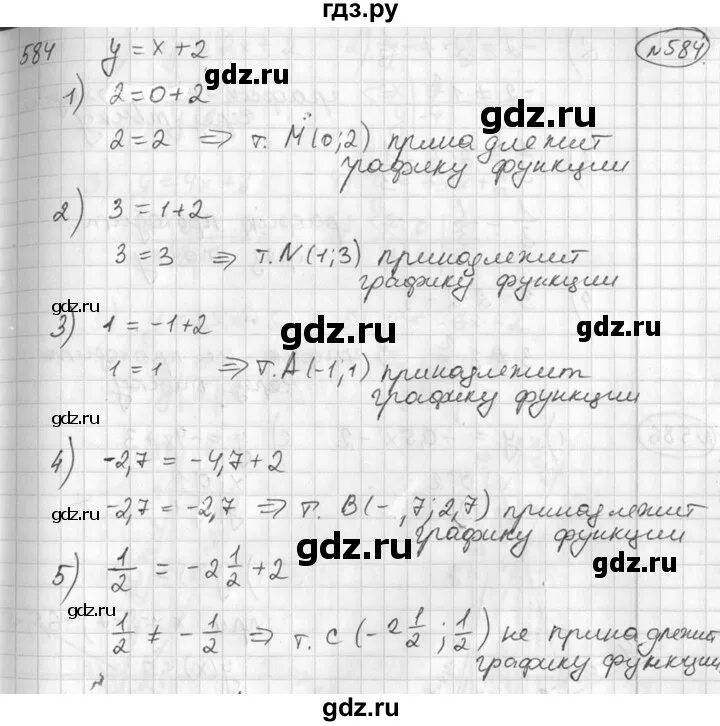 гдз.ру
584 y = x + 2 №584
gdz.ru
1) 2 = 0 + 2
gdz.ru
2 = 2 ⇒ т. M (0; 2) принадлежит
графику функции
2) 3 = 1 + 2
3 = 3 ⇒ т. N (1; 3) принадлежит
графику функции
gdz.ru
3) 1 = -1 + 2
gdz.ru
gdz.ru
1 = 1 ⇒ т. A (-1; 1) принадлежит
графику функции
gdz.ru
4) -2,7 = -4,7 + 2
-2,7 = -2,7 ⇒ т. B (- ,7; 2,7) принадлежит
графику функции
gdz.ru
gdz.ru
gdz.ru
5) 1/2 = -2 1/2 + 2
1/2 ≠ -1/2 ⇒ т. C (-2 1/2; 1/2) не принадлежит
графику функции
gdz.ru